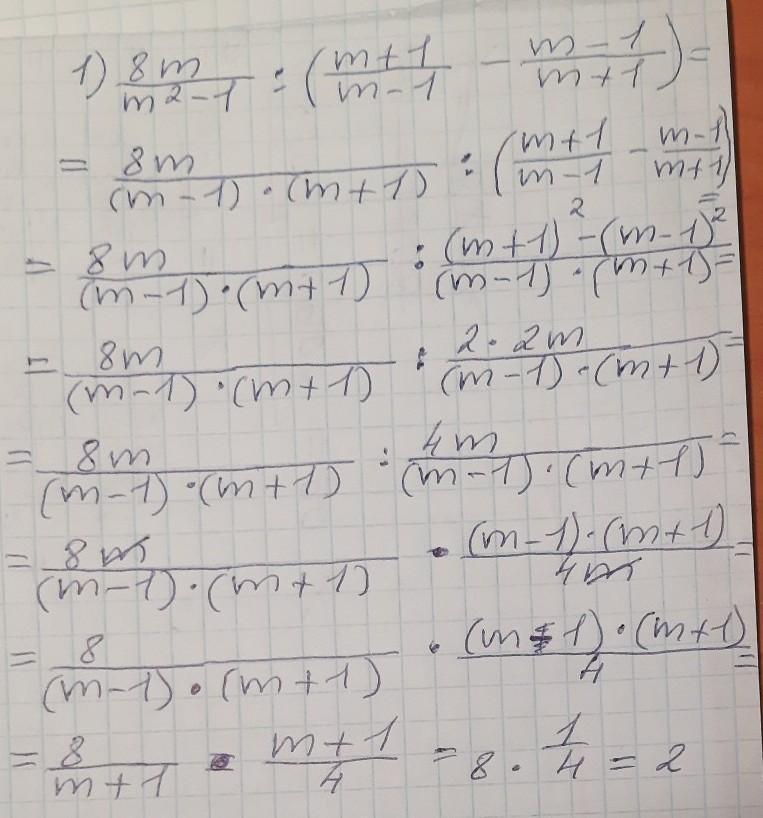 1) 8m/(m²-1) : ((m+1)/(m-1) - (m-1)/(m+1)) =
= 8m/((m-1)·(m+1)) : ((m+1)/(m-1) - (m-1)/(m+1)) =
= 8m/((m-1)·(m+1)) : ((m+1)²-(m-1)²)/((m-1)·(m+1)) =
= 8m/((m-1)·(m+1)) : (2·2m)/((m-1)·(m+1)) =
= 8m/((m-1)·(m+1)) : 4m/((m-1)·(m+1)) =
= 8m/((m-1)·(m+1)) · ((m-1)·(m+1))/4m =
= 8/((m-1)·(m+1)) · ((m-1)·(m+1))/4 =
= 8/(m+1) · (m+1)/4 = 8·1/4 = 2